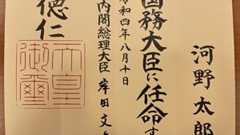 河野太郎
国務大臣に任命す
令和四年八月十日
内閣総理大臣 岸田文
徳仁
天皇御璽